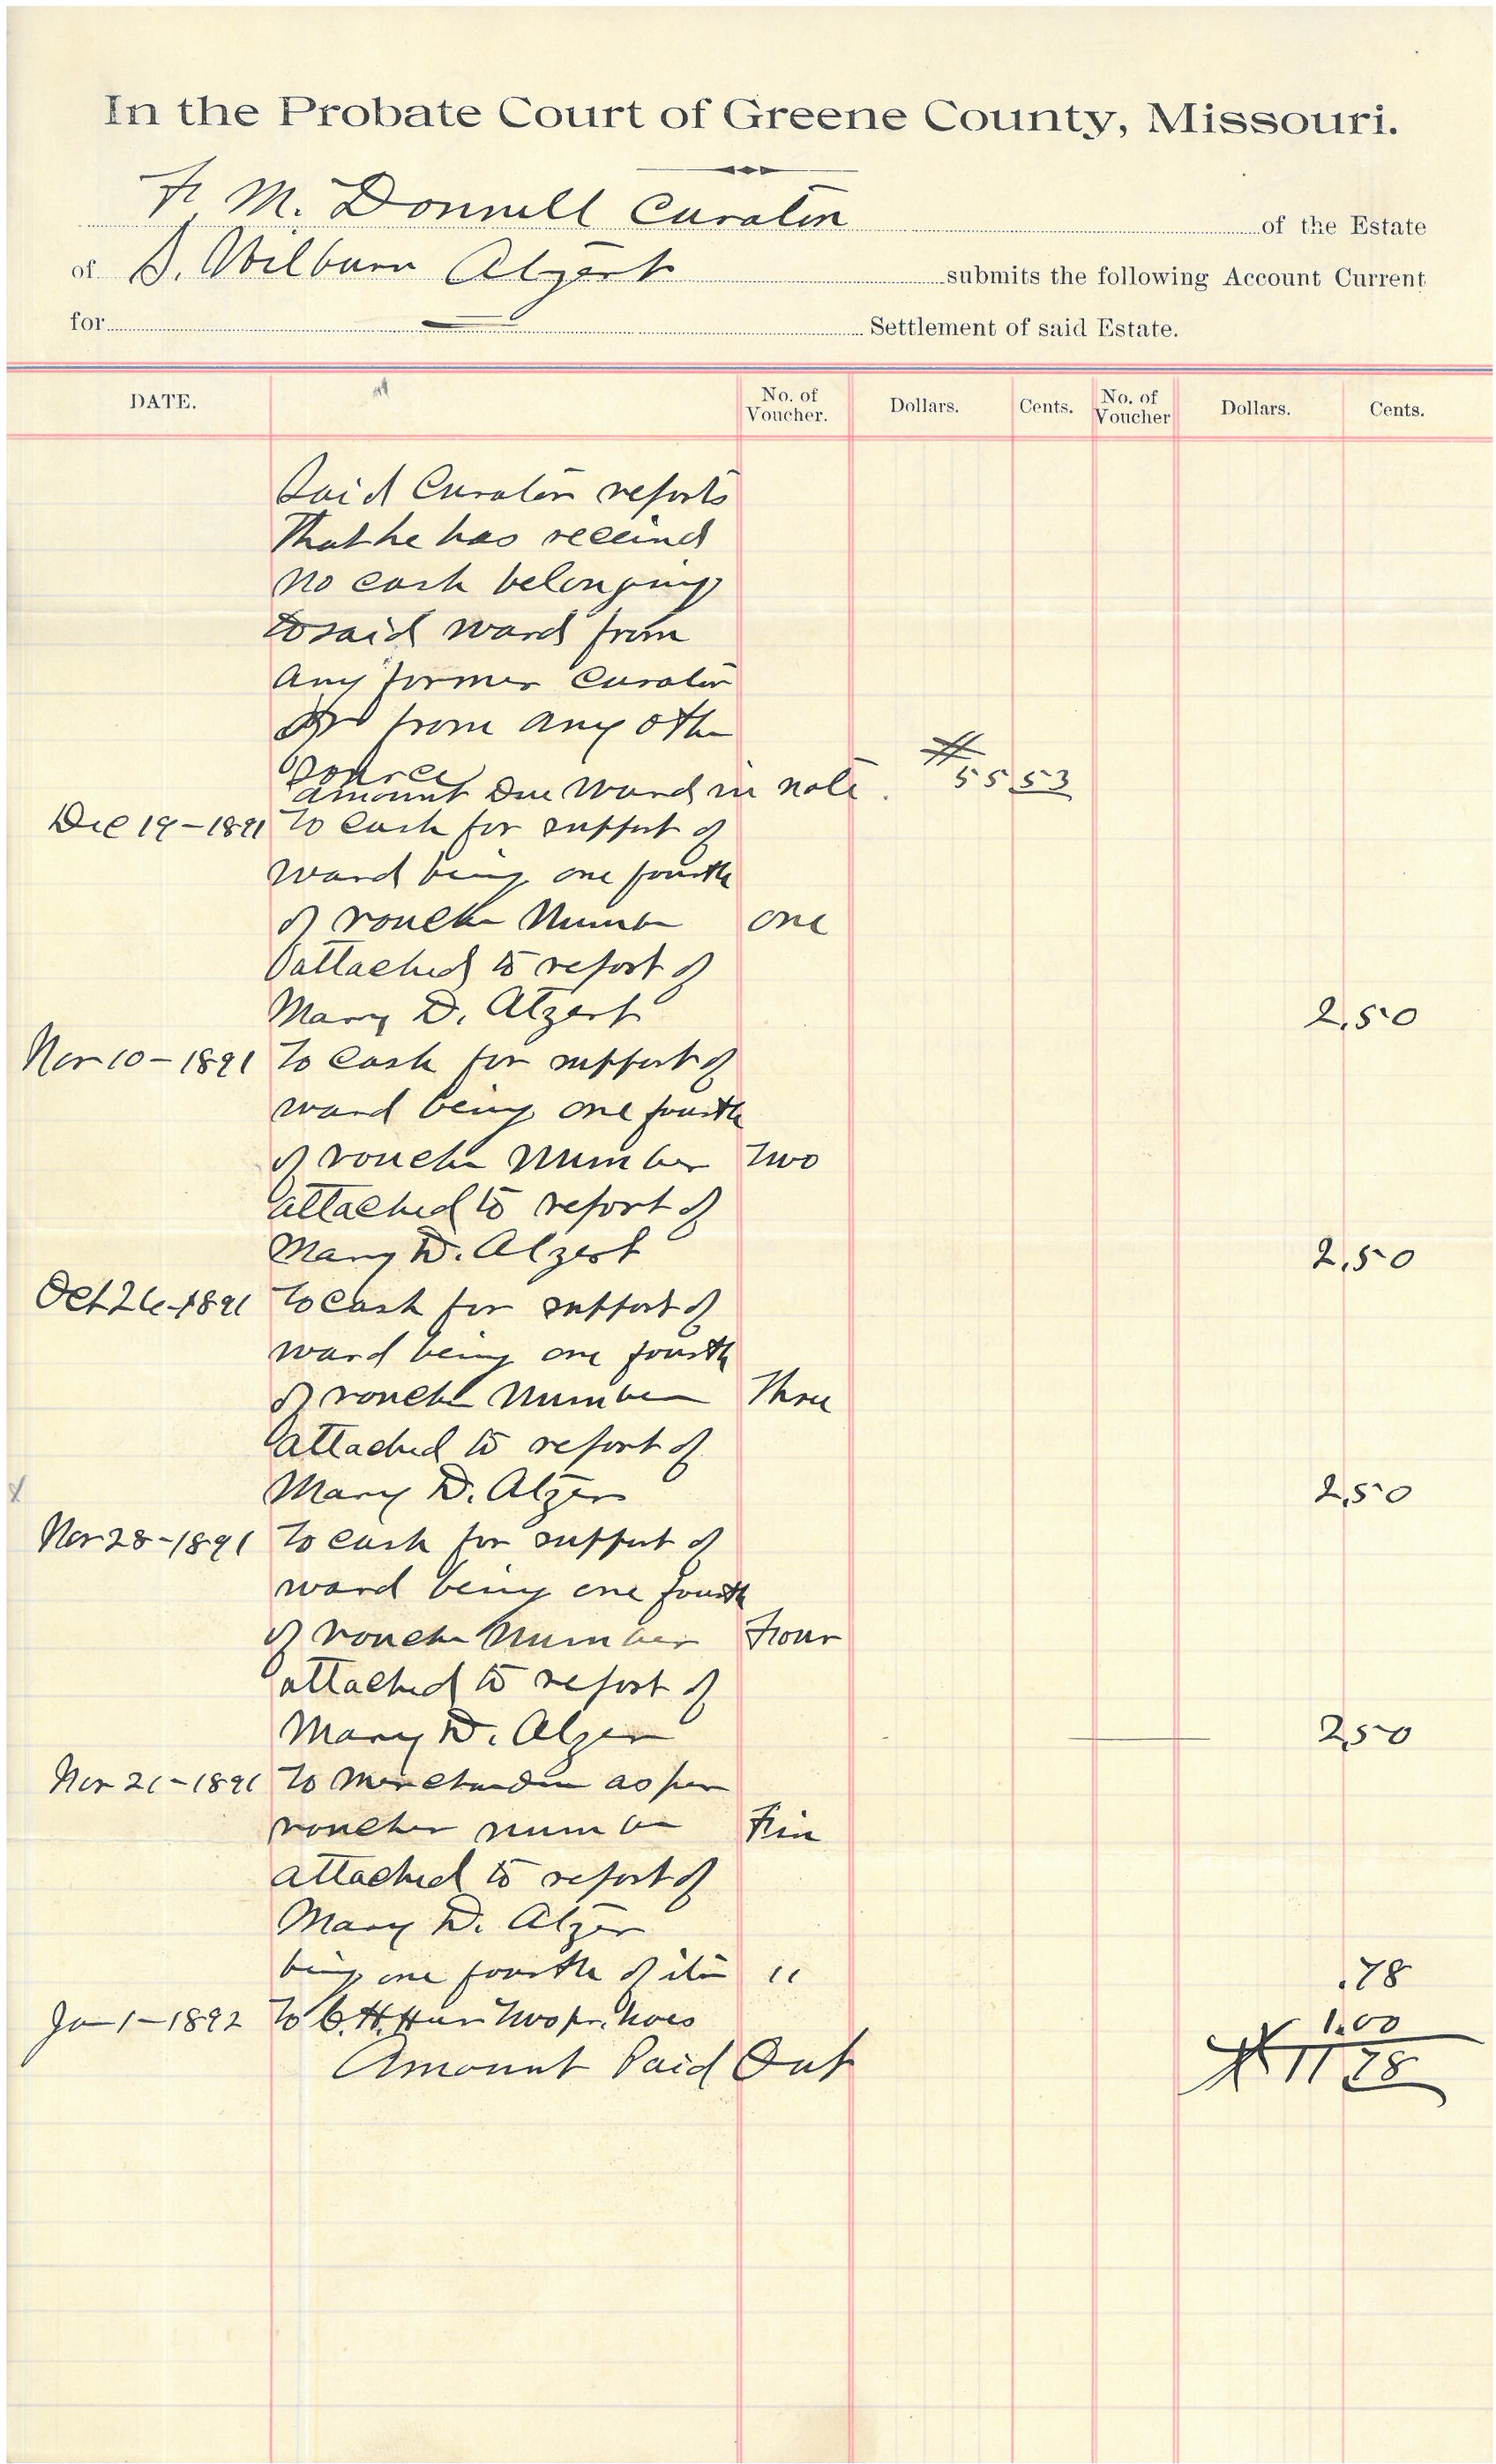 In the Probate Court of Greene County, Missouri.
F. M. Donnell Curator of the Estate
of S. Wilburn Atzert submits the following Account Current
for Settlement of said Estate.
DATE. No. of Voucher. Dollars. Cents. No. of Voucher Dollars. Cents.
Said Curator reports
That he has received
no cash belonging
to said ward from
any former Curator
or from any other
source
amount Due Ward in note. # 55 53
Dec 19-1891 To Cash for support of
ward being one fourth
of voucher Number one
attached to report of
Mary D. Atzert 2,50
Nov 10-1891 To Cash for support of
ward being one fourth
of voucher Number Two
attached to report of
Mary D. Alzert 2,50
Oct 26-1891 To Cash for support of
ward being one fourth
of voucher Number Three
attached to report of
Mary D. Atzer 2,50
Nov 28-1891 To Cash for support of
ward being one fourth
of voucher Number Four
attached to report of
Mary D. Alzer 2,50
Nov 21-1891 To Merchandise as per
voucher number Five
attached to report of
Mary D. Atzer
being one fourth of item " .78
Ja 1-1892 To C. H. Two pr. Shoes 1.00
Amount Paid Out # 11 78